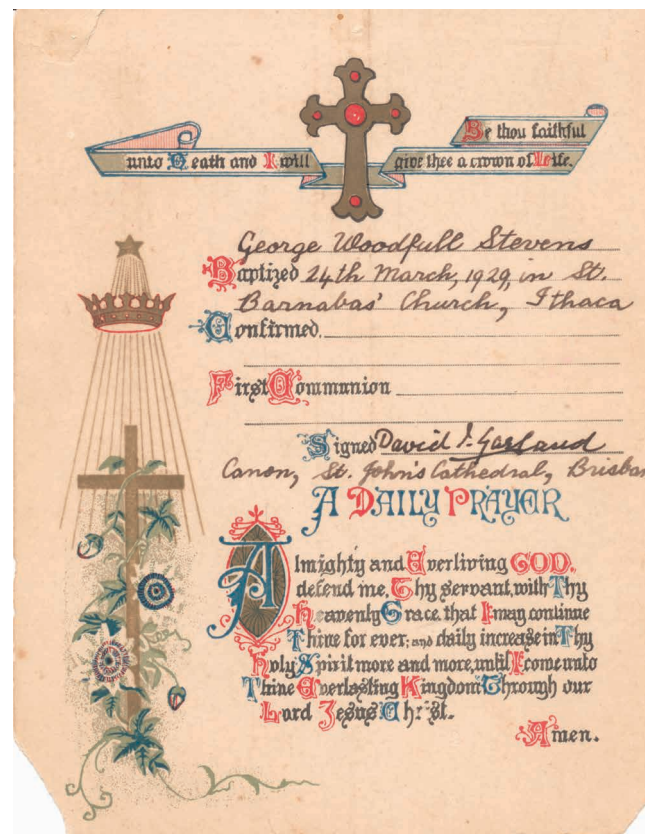 Be thou faithful
unto Death and I will give thee a crown of Life.
George Woodfull Stevens
Baptized 24th March, 1929, in St.
Barnabas' Church, Ithaca
Confirmed.
First Communion
Signed David J. Garland
Canon, St. John's Cathedral, Brisban
A DAILY PRAYER
Almighty and Everliving GOD,
defend me, Thy servant, with Thy
heavenly Grace, that I may continue
Thine for ever; and daily increase in Thy
Holy Spirit more and more, until I come unto
Thine Everlasting Kingdom Through our
Lord Jesus Christ.
Amen.